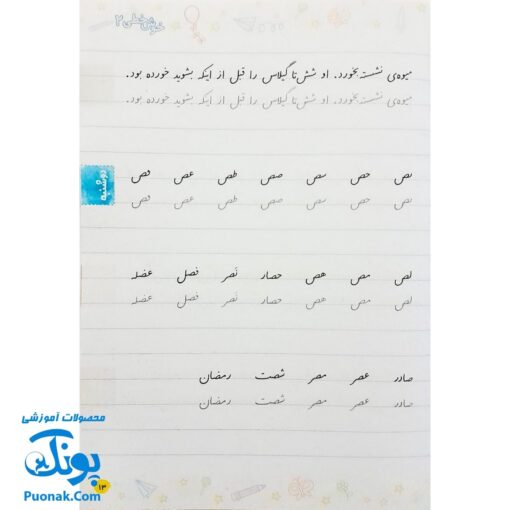 خوش‌خطی ۲
میوه‌ی نشسته بخورد. او شش تا گیلاس را قبل از اینکه بشوید خورده بود.
میوه‌ی نشسته بخورد. او شش تا گیلاس را قبل از اینکه بشوید خورده بود.
دوشنبه
بص حص سص صص طص عص فص
بص حص سص صص طص عص فص
لص مص هص حصار نصر فصل عضله
لص مص هص حصار نصر فصل عضله
صادر عصر مصر شصت رمضان
صادر عصر مصر شصت رمضان
محصولات آموزشی
پونک
Puonak.Com
۱۳